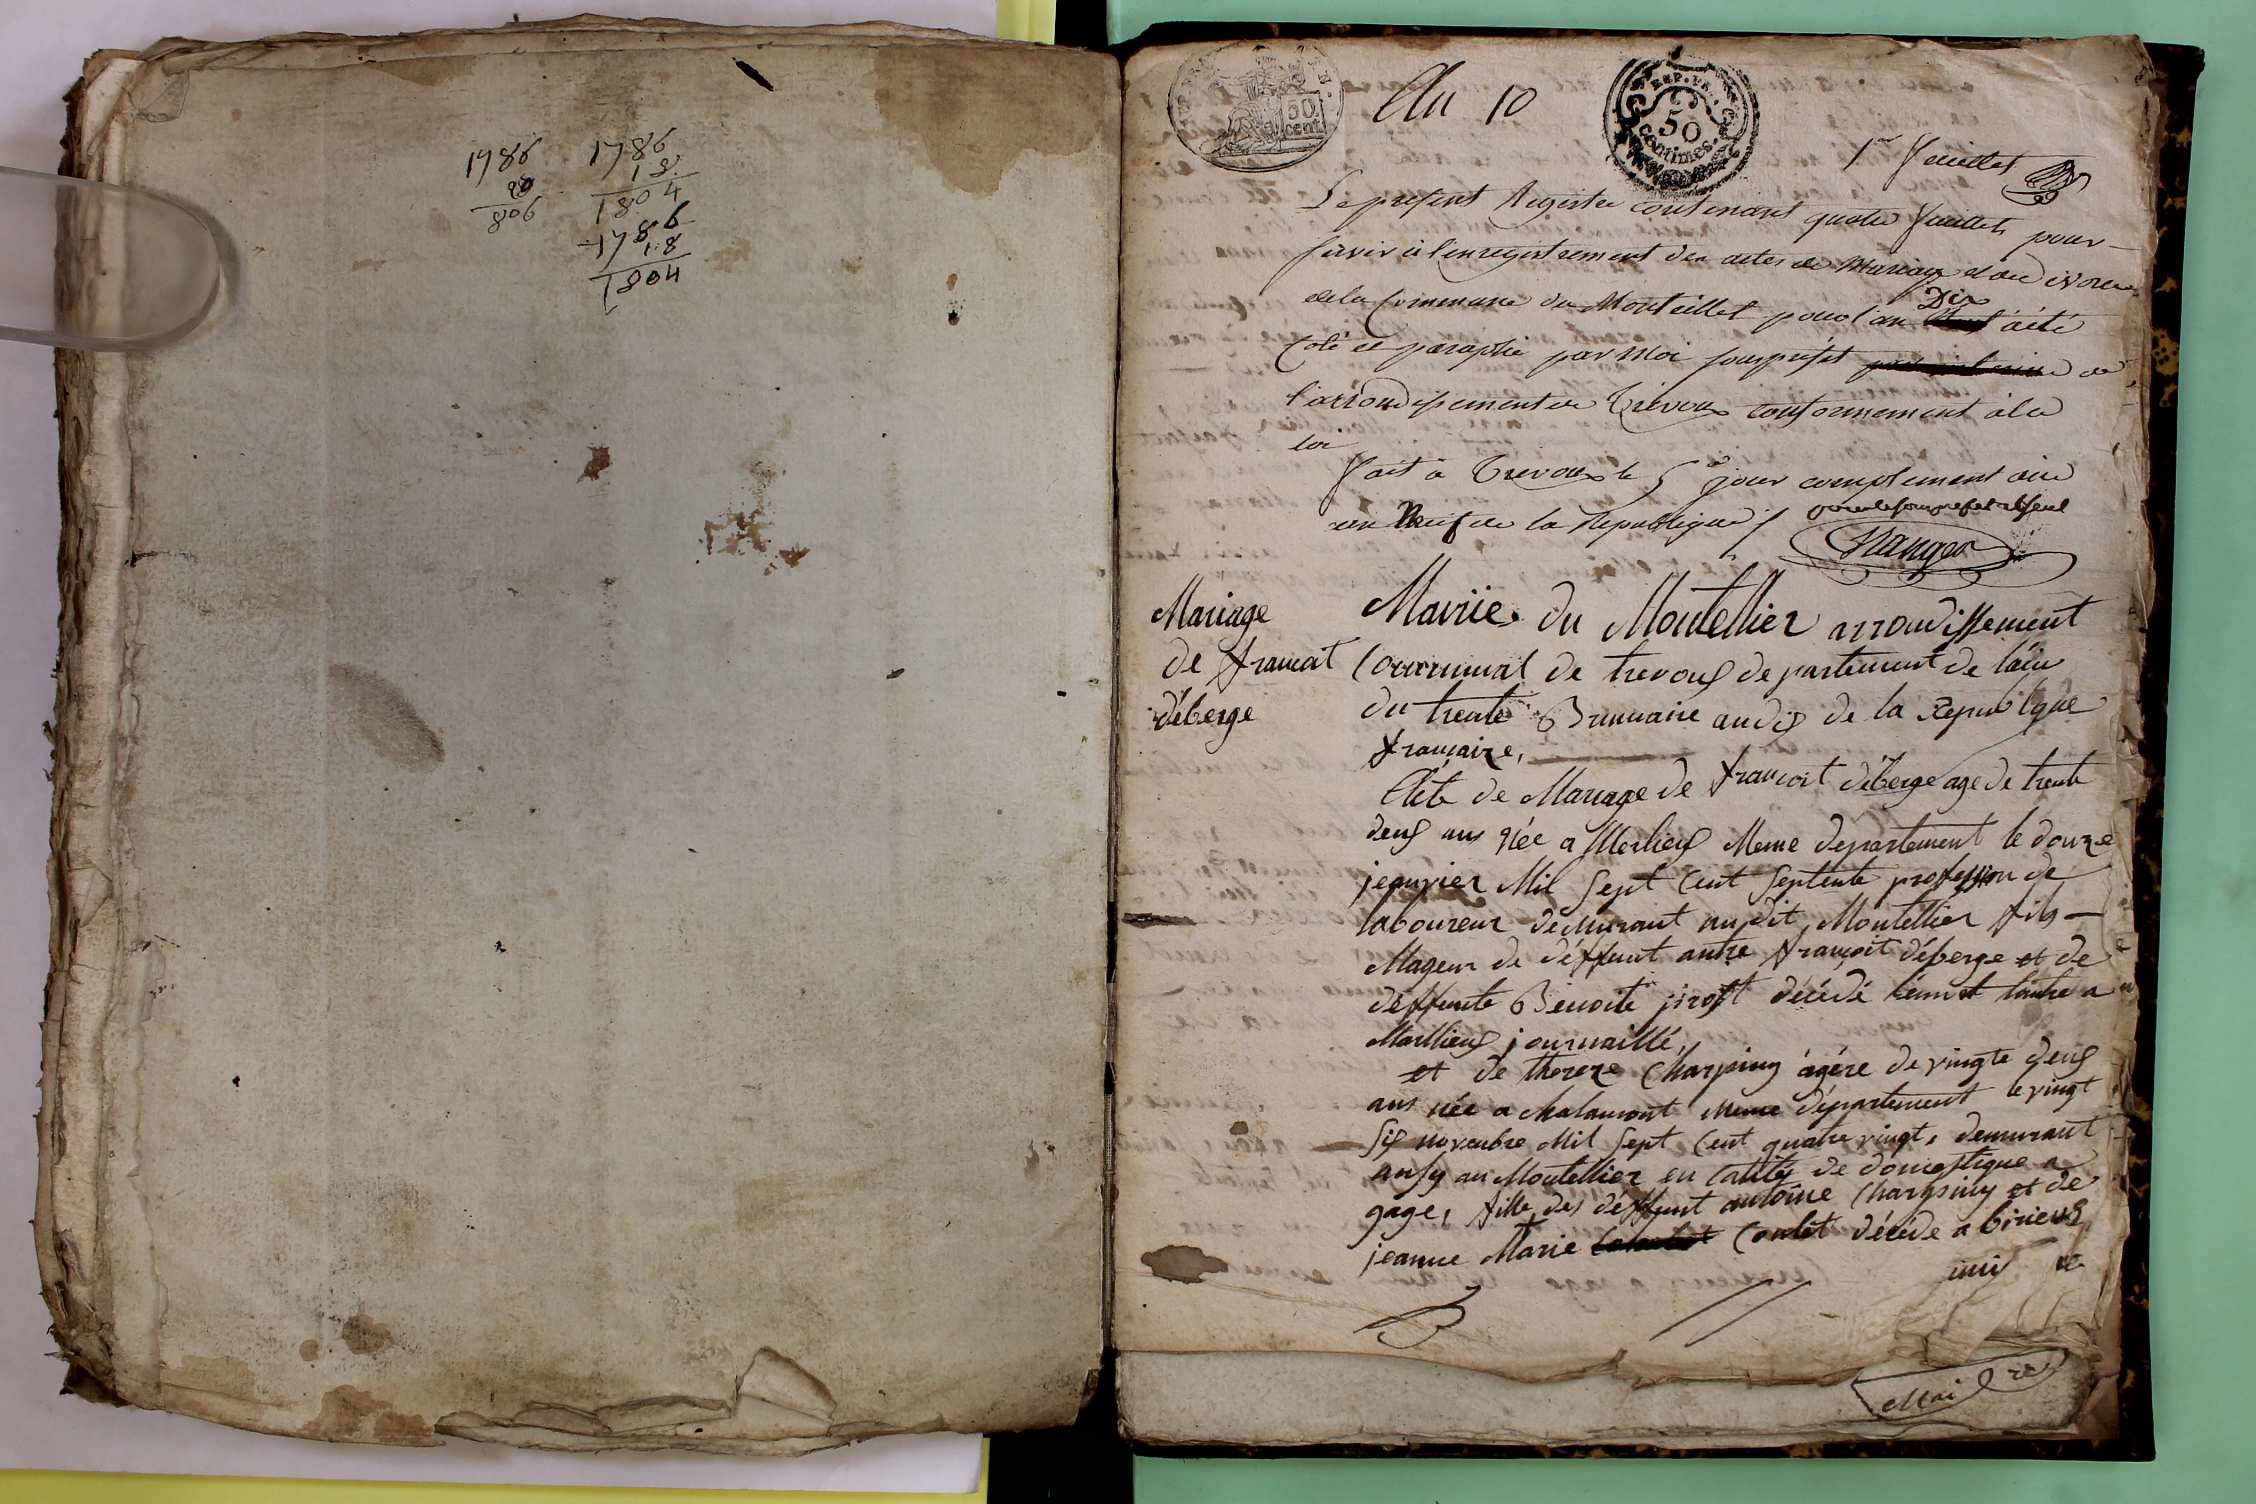 1786
20
806
1786
18
1804
1786
18
1804
50
cent
An 10
REP. FRA.
50
centimes.
1er feuillet
Le present Registre contenant quatre feuillets pour
servir à l'enregistrement des actes de Mariage et de divorce
de la Commune du Monteillet pour l'an Dix à été
Coté et paraphé par Moi souspréfet de
l'arrondissement de Trevoux conformement à la
loi
fait à Trevoux le 5e jour complementaire
an Neuf de la Republique /.
pour le sous prefet absent
Mariage
de francoit
déberge
Mairie du Montellier arrondissement
Communal de trevous departement de l'ain
du trente Brumaire an dix de la Republque
francaize,
Acte de Mariage de francoit déberge age de trente
deus ans née a Merlieus Meme departement le douze
jeanvier Mil Sept Cent Septente profession de
laboureur demurant audit Montellier fils
Mageur de déffunt autre françoit déberge et de
deffunte Benoite jirost décédé l'eun et l'autre a
Marllieus journaillé,
et de thereze Charpiny ágéze de vingte deus
ans née a Chalamont Meme département le vingt
Six novenbre Mil Sept Cent quatre vingt, demurant
ausy au Montellier en calité de domestique a
gage, fille des déffunt antoine Charpiny et de
jeanne Marie Coulet décéde a birieus
Mai re